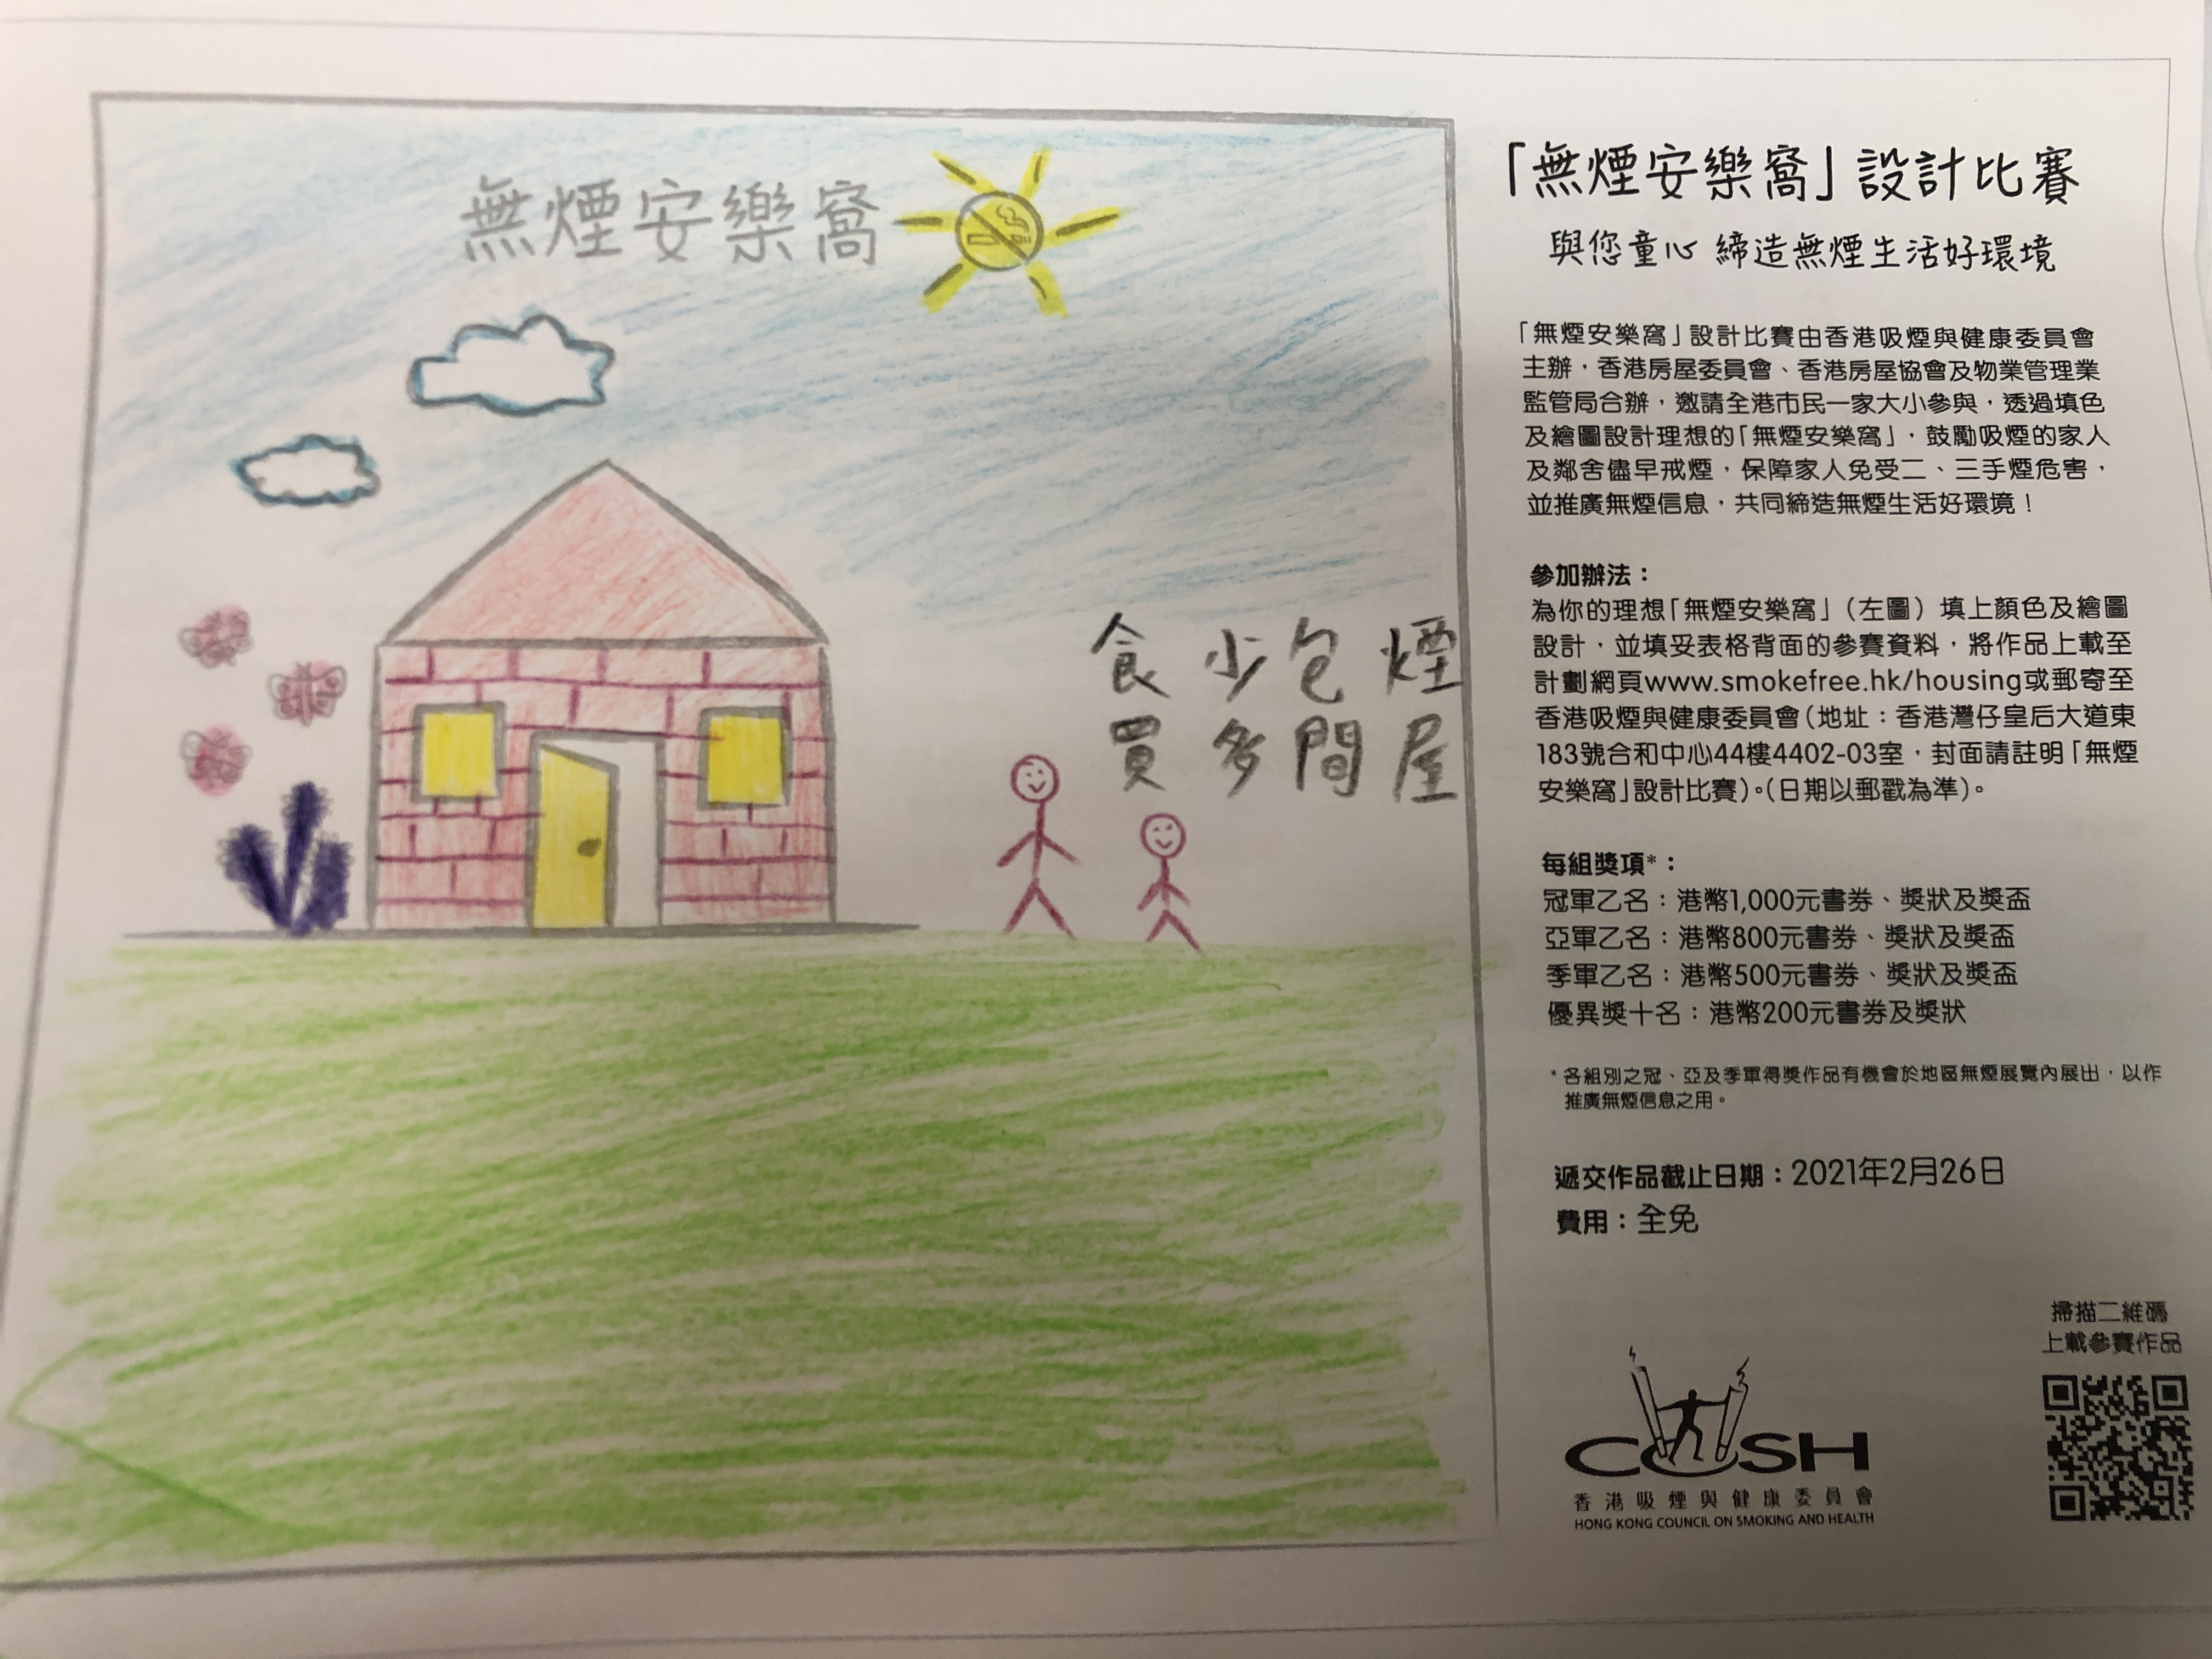 無煙安樂窩
食少包煙
買多間屋
「無煙安樂窩」設計比賽
與您童心 締造無煙生活好環境
「無煙安樂窩」設計比賽由香港吸煙與健康委員會
主辦，香港房屋委員會、香港房屋協會及物業管理業
監管局合辦，邀請全港市民一家大小參與，透過填色
及繪圖設計理想的「無煙安樂窩」，鼓勵吸煙的家人
及鄰舍儘早戒煙，保障家人免受二、三手煙危害，
並推廣無煙信息，共同締造無煙生活好環境！
參加辦法：
為你的理想「無煙安樂窩」（左圖）填上顏色及繪圖
設計，並填妥表格背面的參賽資料，將作品上載至
計劃網頁www.smokefree.hk/housing或郵寄至
香港吸煙與健康委員會（地址：香港灣仔皇后大道東
183號合和中心44樓4402-03室，封面請註明「無煙
安樂窩」設計比賽）。（日期以郵戳為準）。
每組獎項*：
冠軍乙名：港幣1,000元書券、獎狀及獎盃
亞軍乙名：港幣800元書券、獎狀及獎盃
季軍乙名：港幣500元書券、獎狀及獎盃
優異獎十名：港幣200元書券及獎狀
* 各組別之冠、亞及季軍得獎作品有機會於地區無煙展覽內展出，以作
推廣無煙信息之用。
遞交作品截止日期：2021年2月26日
費用：全免
掃描二維碼
上載參賽作品
COSH
香港吸煙與健康委員會
HONG KONG COUNCIL ON SMOKING AND HEALTH